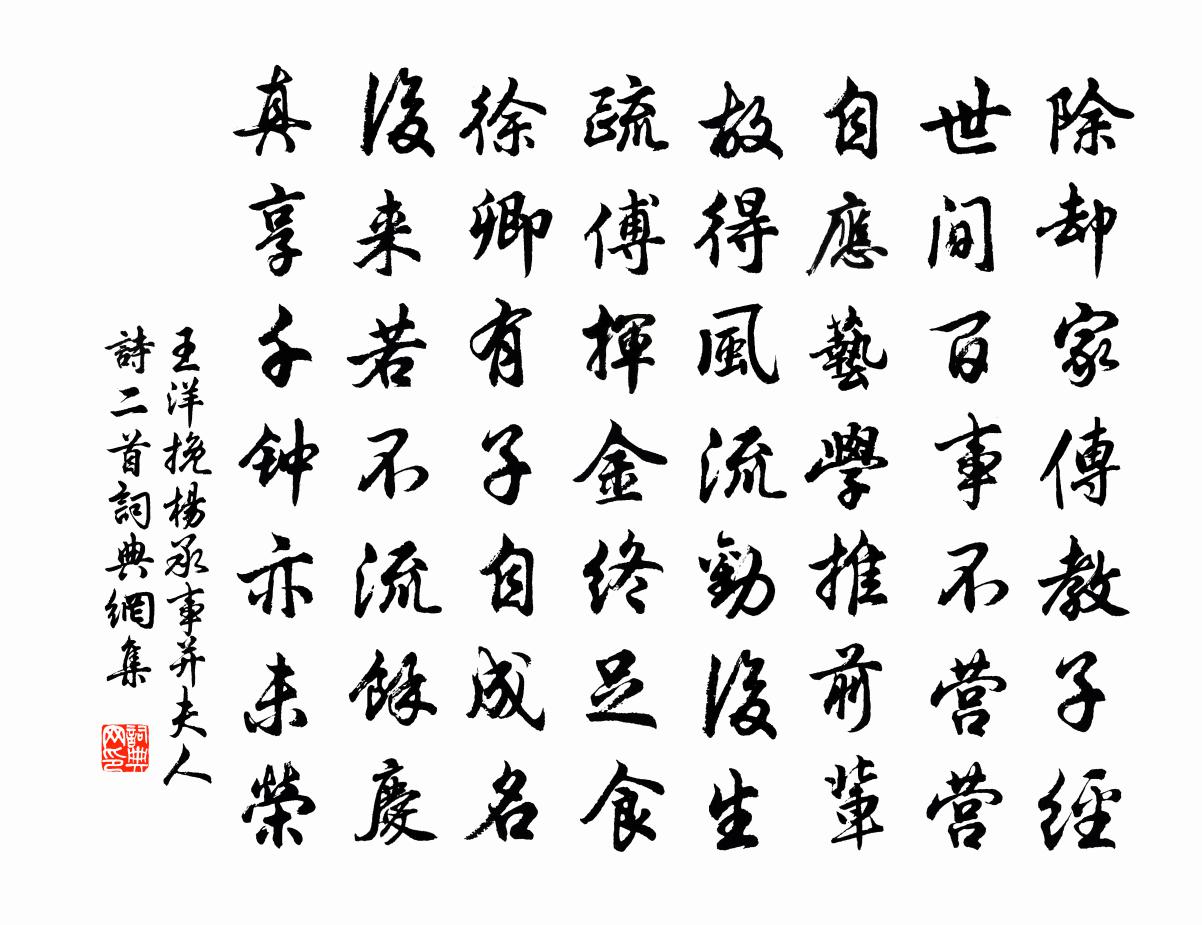 除却家傳教子經
世间百事不营营
自應藝學推前輩
故得風流勸後生
疏傅揮金終足食
徐卿有子自成名
後来若不流餘慶
真享千钟亦未榮
王洋挽楊承事并夫人
詩二首詞典網集
詞典网印